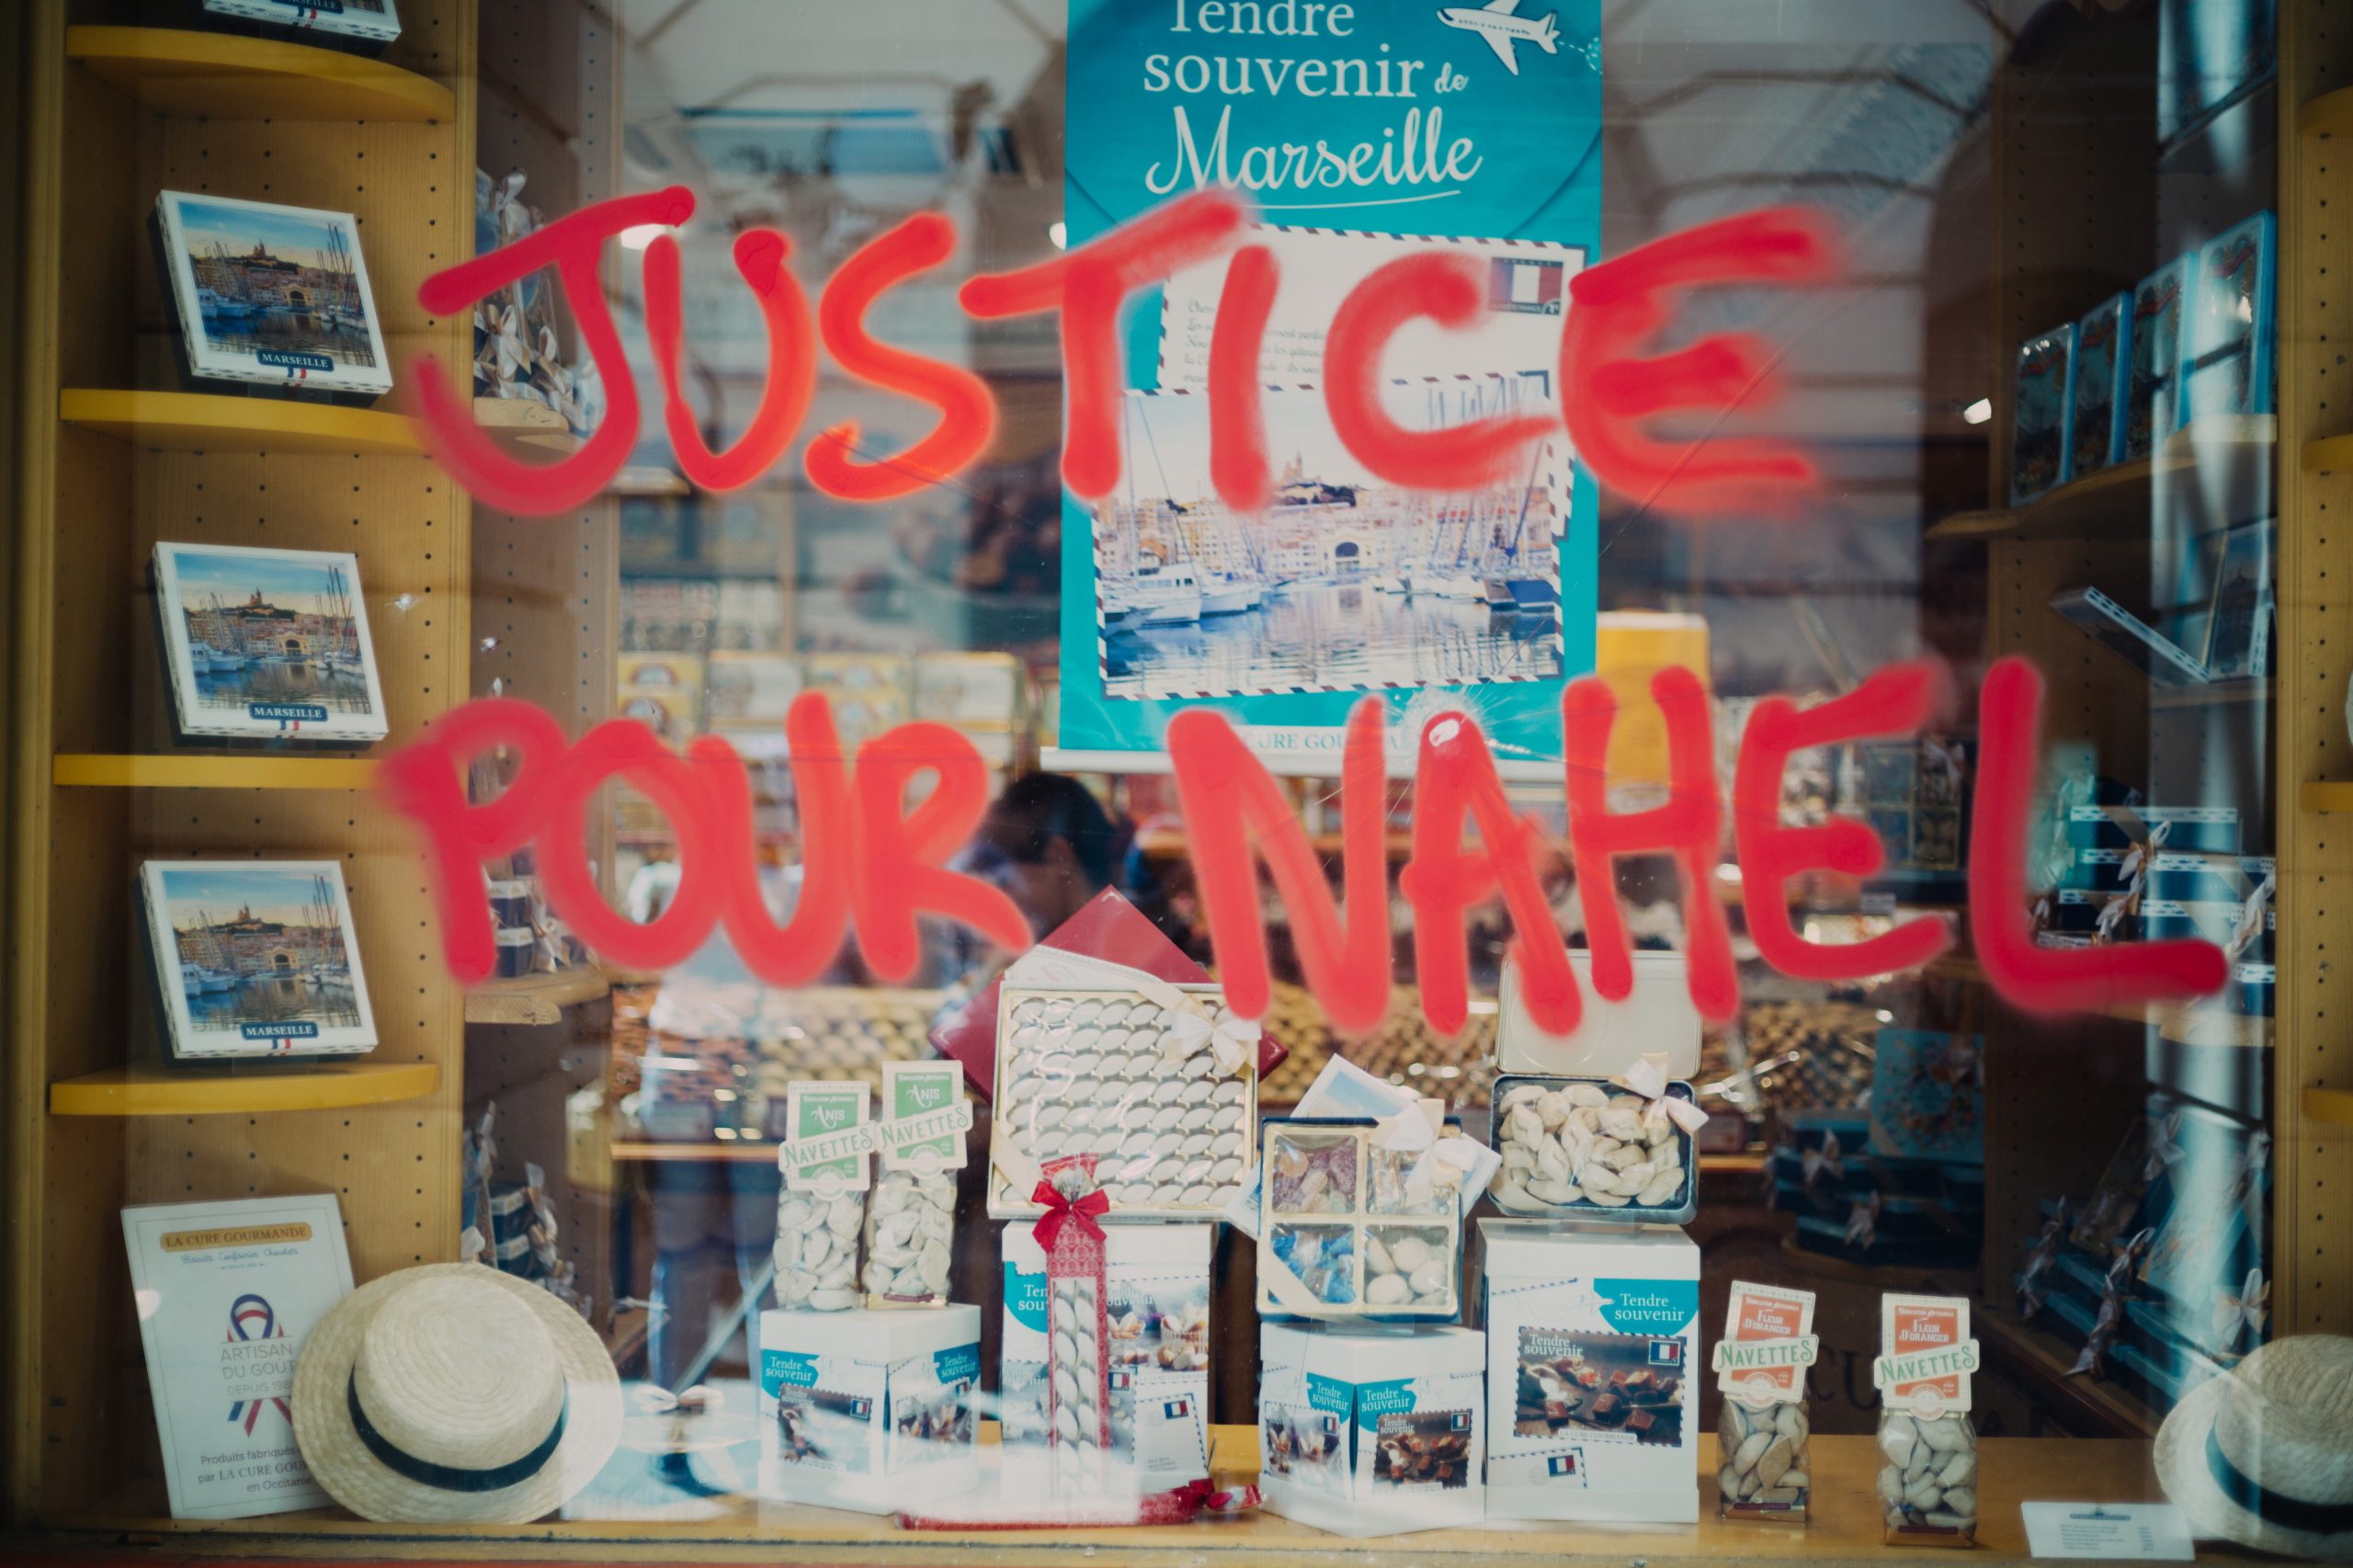 Tendre
souvenir de
Marseille
JUSTICE
POUR NAHEL
MARSEILLE
MARSEILLE
MARSEILLE
LA CURE GOURMANDE
Biscuits Confiseries Chocolats
ARTISAN
DU GOUT
DEPUIS 1989
Produits fabriqués
par LA CURE GOU
en Occitanie
ANIS
NAVETTES
ANIS
NAVETTES
Tendre
souvenir
Tendre
souvenir
Tendre
souvenir
Tendre
souvenir
Tendre
souvenir
Tendre
souvenir
Tendre
souvenir
LA CURE GOURMANDE
FLEUR
D'ORANGER
NAVETTES
FLEUR
D'ORANGER
NAVETTES